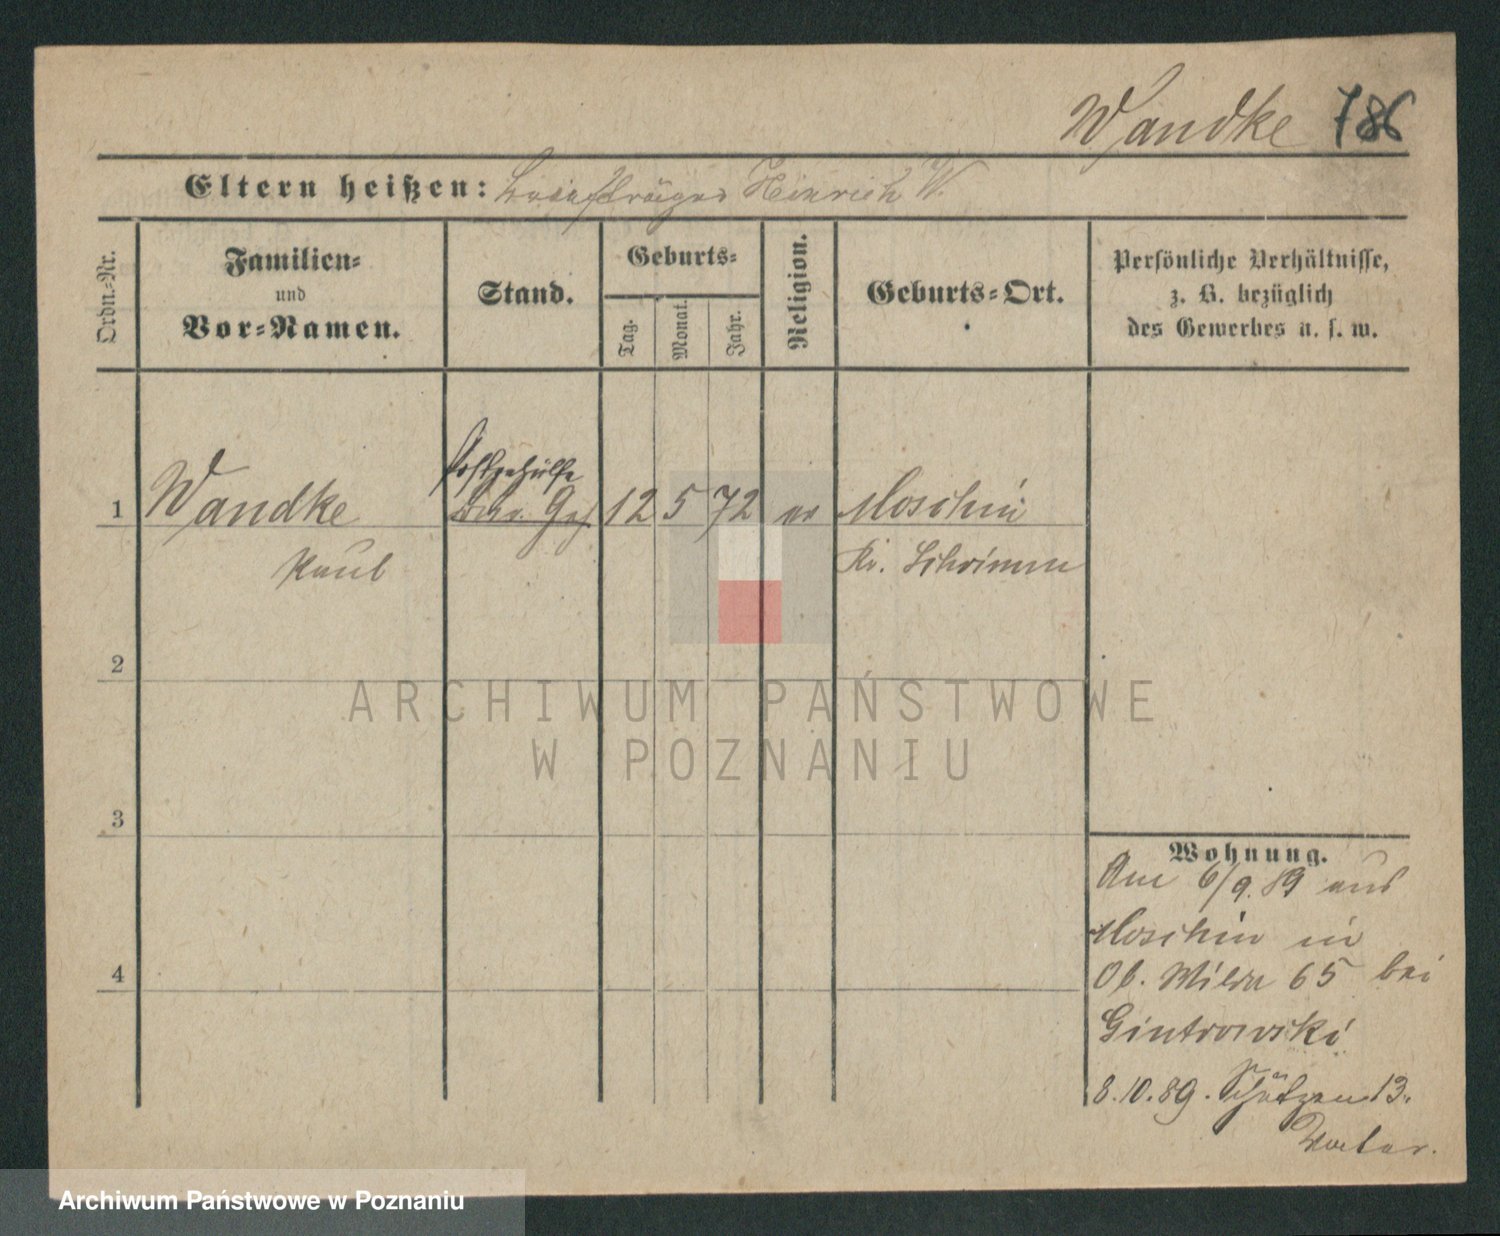 Wandke 786
Eltern heißen: Briefträger Heinrich W.
Ordn.-Nr.
Familien-
und
Vor-Namen.
Stand.
Geburts-
Tag.
Monat.
Jahr.
Religion.
Geburts-Ort.
Persönliche Verhältnisse,
z. B. bezüglich
des Gewerbes u. s. w.
Postgehülfe
1 Wandke 12 5 72 ev Moschin
Paul Kr. Schrimm
2
ARCHIWUM PAŃSTWOWE
W POZNANIU
3
4
Wohnung.
Am 6/9.89 aus
Moschin in
Ob. Wilda 65 bei
Gintrowski
8.10.89. Schützen 13.
Vater.
Archiwum Państwowe w Poznaniu